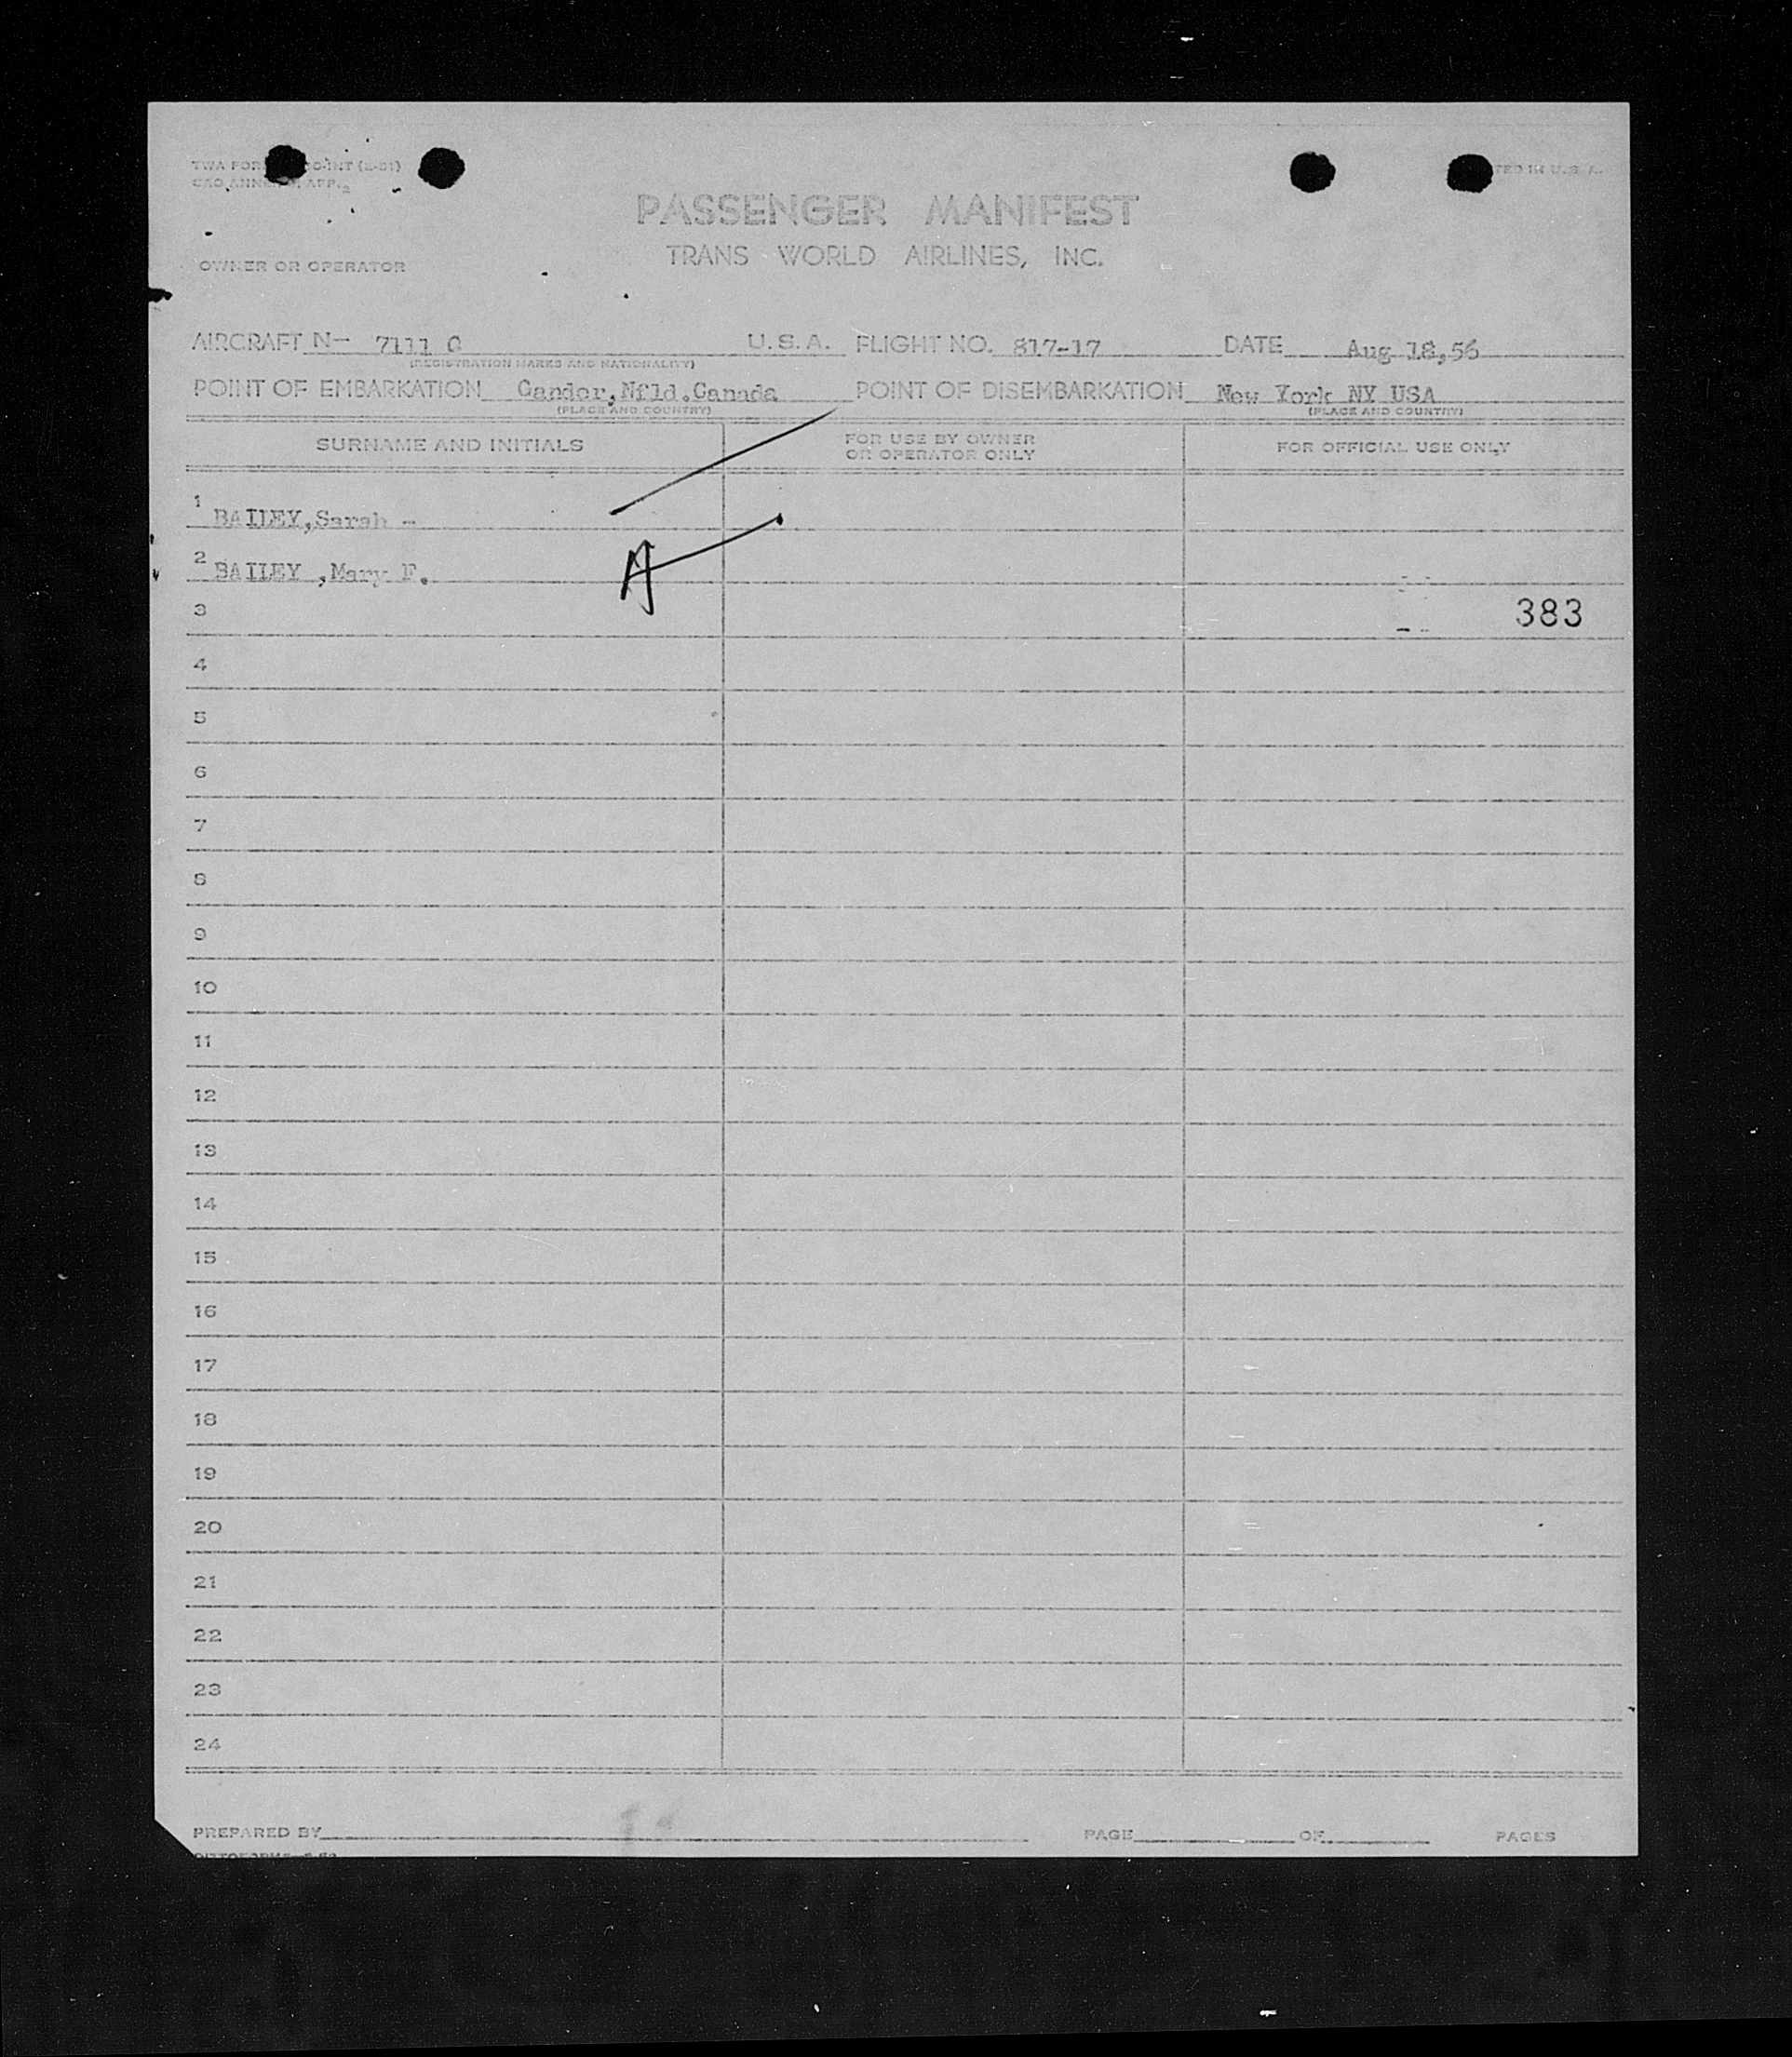 TWA FOR
PASSENGER MANIFEST
TRANS WORLD AIRLINES, INC.
OWNER OR OPERATOR
AIRCRAFT N- 7111 C U.S.A. FLIGHT NO. 817-17 DATE Aug 18,56
(REGISTRATION MARKS AND NATIONALITY)
POINT OF EMBARKATION Gander,Nfld.Canada POINT OF DISEMBARKATION New York NY USA
(PLACE AND COUNTRY) (PLACE AND COUNTRY)
SURNAME AND INITIALS FOR USE BY OWNER OR OPERATOR ONLY FOR OFFICIAL USE ONLY
1 BAILEY,Sarah -
2 BAILEY ,Mary F.
A
3 383
4
5
6
7
8
9
10
11
12
13
14
15
16
17
18
19
20
21
22
23
24
PREPARED BY PAGE OF PAGES